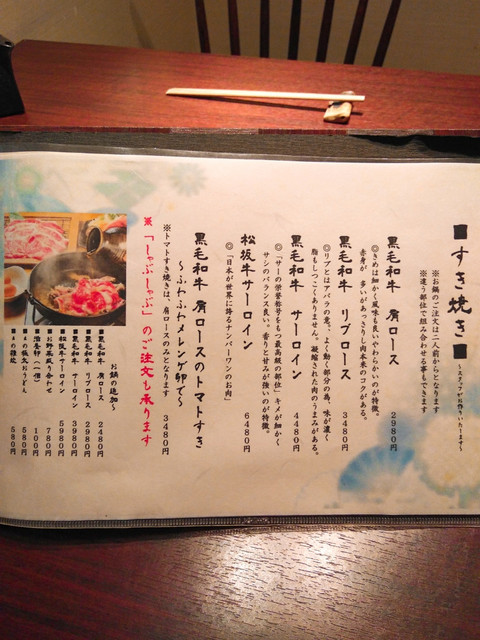 ■すき焼き■
～スタッフがお作りいたします～
※お鍋のご注文は二人前からとなります
※違う部位で組み合わせる事もできます
黒毛和牛 肩ロース 2980円
◎きめは細かく風味も良いやわらかいのが特徴。
赤身が多いがあっさりし肉本来のコクがある。
黒毛和牛 リブロース 3480円
◎リブとはアバラの意。よく動く部分の為、味が濃く
脂もしつこくありません。凝縮された肉のうまみがある。
黒毛和牛 サーロイン 4480円
◎「サーの栄誉称号をもつ最高級の部位」キメが細かく
サシのバランス良い。香りと甘みが強いのが特徴。
松坂牛サーロイン 6480円
◎「日本が世界に誇るナンバーワンのお肉」
黒毛和牛 肩ロースのトマトすき
～ふわふわメレンゲ卵で～ 3480円
※トマトすき焼きは、肩ロースのみとなります
※「しゃぶしゃぶ」のご注文も承ります
お鍋の追加～
■黒毛和牛 肩ロース 2480円
■黒毛和牛 リブロース 2980円
■黒毛和牛 サーロイン 3980円
■松坂牛サーロイン 5980円
■お野菜盛り合わせ 780円
■追卵 100円
■〆の うどん 580円
■〆の雑炊 580円